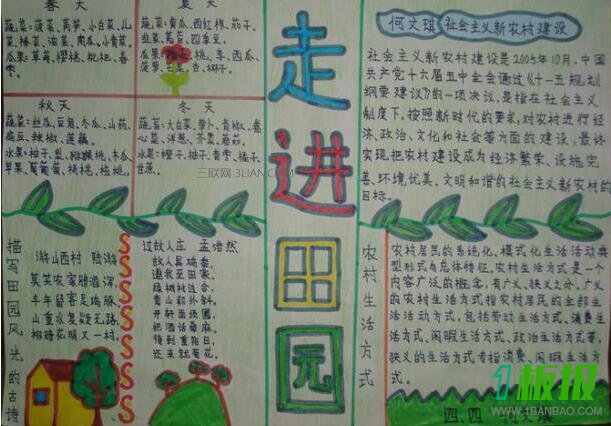 春天
蔬菜:菠菜、莴笋、小白菜、儿
菜、椿菜、油菜、南瓜、小青菜。
瓜果:草莓、樱桃、枇杷、春
夏天
蔬菜:黄瓜、西红柿、茄子、
韭菜、莴苣、四季豆。
瓜果: 桃、李、西瓜、
菠萝、芒果、杏、椰子。
秋天
蔬菜:丝瓜、豆角、冬瓜、山药、
扁豆、辣椒、莲藕。
水果:柚子、梨、猕猴桃、木瓜、
苹果、葡萄
冬天
蔬菜:大白菜、萝卜、青椒、卷
心菜、洋葱、芥菜、蘑菇。
水果:橙子、柚子、青枣、橘子、
甘蔗。
三联网 3LIAN.COM
走进田园
何文琪 社会主义新农村建设
社会主义新农村建设是2005年10月,中国
共产党十六届五中全会通过《十一五规划
纲要建议》的一项决议,是指在社会主义
制度下,按照新时代的要求,对农村进行经
济、政治、文化和社会等方面的建设,最终
实现把农村建设成为经济繁荣、设施完
善、环境优美、文明和谐的社会主义新农村的
目标。
描写田园风光的古诗
游山西村 陆游
莫笑农家腊酒浑,
丰年留客足鸡豚。
山重水复疑无路,
柳暗花明又一村。
过故人庄 孟浩然
故人具鸡黍,
邀我至田家。
绿树村边合,
青山郭外斜。
开轩面场圃,
把酒话桑麻。
待到重阳日,
还来就菊花。
农村生活方式
农村居民的系统化、模式化生活活动典
型形式与总体特征。农村生活方式是一个
内容广泛的概念,有广义、狭义之分。广义
的农村生活方式指农村居民的全部生
活活动方式,包括劳动生活方式、消费生
活方式、闲暇生活方式、政治生活方式等。
狭义的生活方式专指消费、闲暇生活方
式。
四、四 何文琪
1板报
WWW.1BANBAO.COM